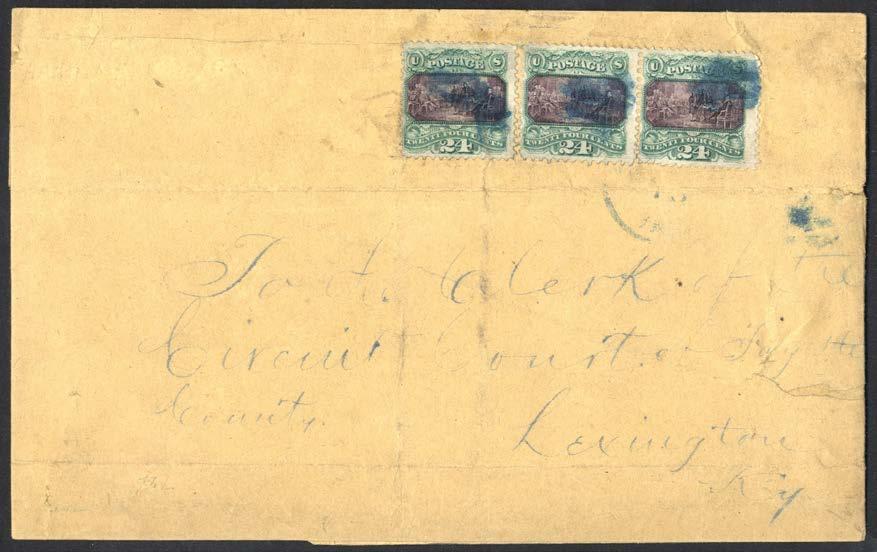 U POSTAGE S
TWENTY FOUR CENTS
24
U POSTAGE S
TWENTY FOUR CENTS
24
U POSTAGE S
TWENTY FOUR CENTS
24
To the Clerk of the
Circuit Court of Fayette
County
Lexington
Ky